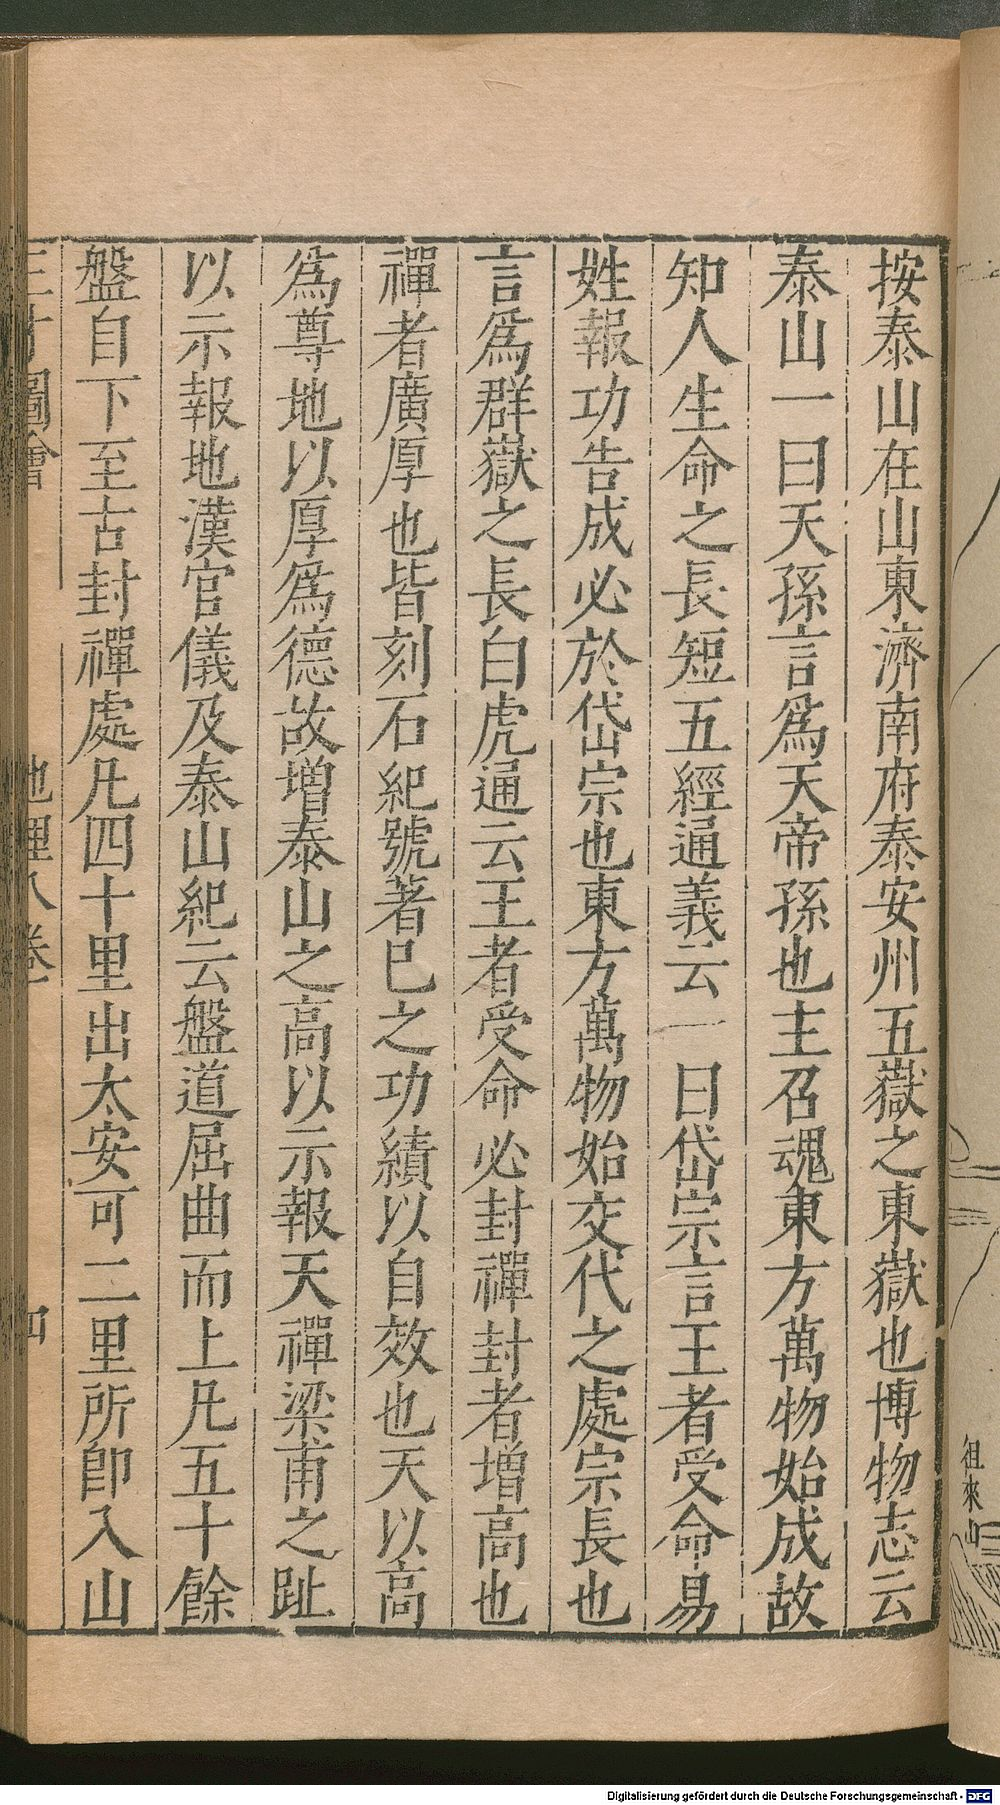 按泰山在山東濟南府泰安州五嶽之東嶽也博物志云
泰山一曰天孫言爲天帝孫也主召魂東方萬物始成故
知人生命之長短五經通義云一曰岱宗言王者受命易
姓報功告成必於岱宗也東方萬物始交代之處宗長也
言爲群嶽之長白虎通云王者受命必封禪封者增高也
禪者廣厚也皆刻石紀號著已之功績以自效也天以高
爲尊地以厚爲德故增泰山之高以示報天禪梁甫之趾
以示報地漢官儀及泰山紀云盤道屈曲而上凡五十餘
盤自下至古封禪處凡四十里出太安可二里所卽入山
三才圖會 地理八卷 四
徂來山
Digitalisierung gefördert durch die Deutsche Forschungsgemeinschaft - DFG